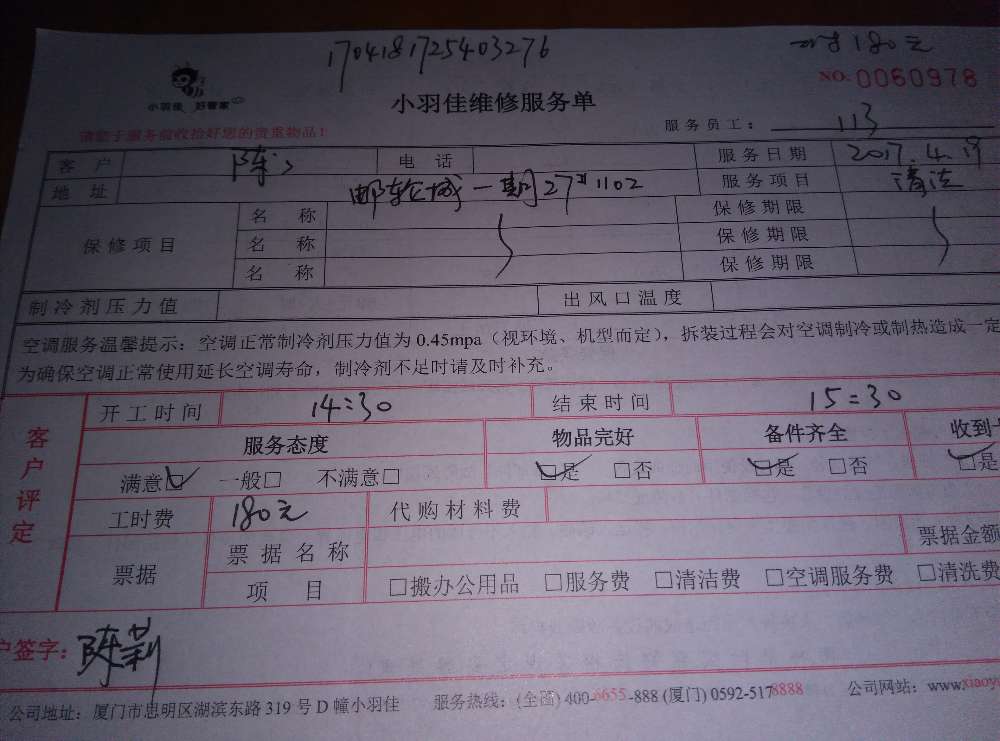 1704181725403276
180元
小羽佳 好管家
NO. 0060978
小羽佳维修服务单
请您于服务前收拾好您的贵重物品！
服务员工： 113
客户 陈 电话 服务日期 2017.4.19
地址 邮轮城一期27#1102 服务项目 清洁
保修项目 名称 保修期限
名称 保修期限
名称 保修期限
制冷剂压力值 出风口温度
空调服务温馨提示：空调正常制冷剂压力值为0.45mpa（视环境、机型而定），拆装过程会对空调制冷或制热造成一定
为确保空调正常使用延长空调寿命，制冷剂不足时请及时补充。
客户评定
开工时间 14:30 结束时间 15:30
服务态度 物品完好 备件齐全 收到
满意☑ 一般□ 不满意□ ☑是 □否 ☑是 □否 ☑是
工时费 180元 代购材料费
票据 票据名称 票据金额
项目 □搬办公用品 □服务费 □清洁费 □空调服务费 □清洗费
户签字： 陈莉
公司地址：厦门市思明区湖滨东路319号D幢小羽佳 服务热线：(全国) 400-6655-888 (厦门) 0592-5178888 公司网站：www.xiaoy